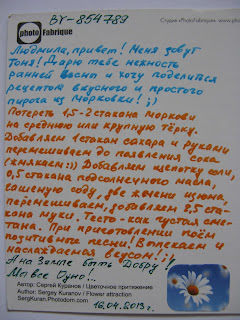 BY-854789
Студия «PhotoFabrique» www.
photo
Fabrique
Людмила, привет! Меня зовут
Тоня! Дарю тебе нежность
ранней весны и хочу поделиться
рецептом вкусного и простого
пирога из морковки! ;)
Потереть 1,5-2 стакана моркови
на среднюю или крупную тёрку.
Добавляем 1 стакан сахара и руками
перемешиваем до появления сока
(хмякаем:)) Добавляем щепотку соли,
0,5 стакана подсолнечного масла,
гашеную соду, две жмени изюма,
перемешиваем, добавляем 2,5 ста-
кана муки. Тесто-как густая сме-
тана. При приготовлении поём
позитивные песни! Выпекаем и
наслаждаемся вкусом! ;)
А на Земле быть Добру!
Мы все Одно!..
Автор: Сергей Куранов / Цветочное притяжение
Author: Sergey Kuranov / Flower attraction
SergKuran.Photodom.com
12.04.2013г.